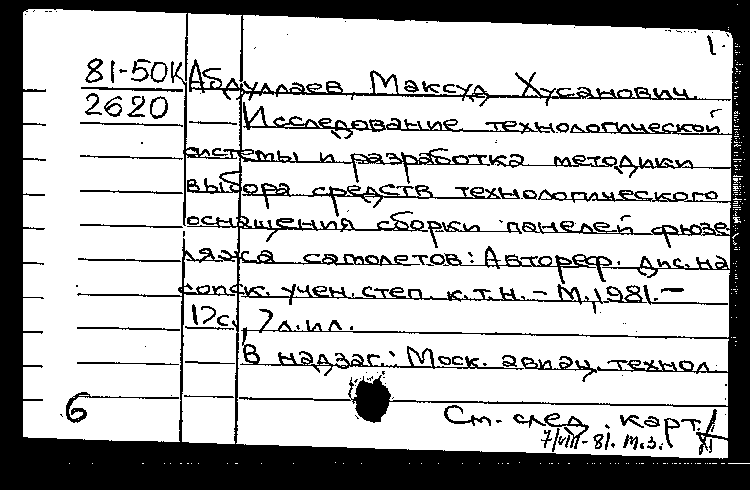 1.
81-50К Абдуллаев, Максуд Хусанович.
2620 Исследование технологической
системы и разработка методики
выбора средств технологического
оснащения сборки панелей фюзе
ляжа самолетов: Автореф. дис. на
соиск. учен. степ. к.т.н. - М., 1981. -
17с., 7 л. ил.
В надзаг.: Моск. авиац. технол.
6 См. след. карт.
7/VIII-81. М.З.